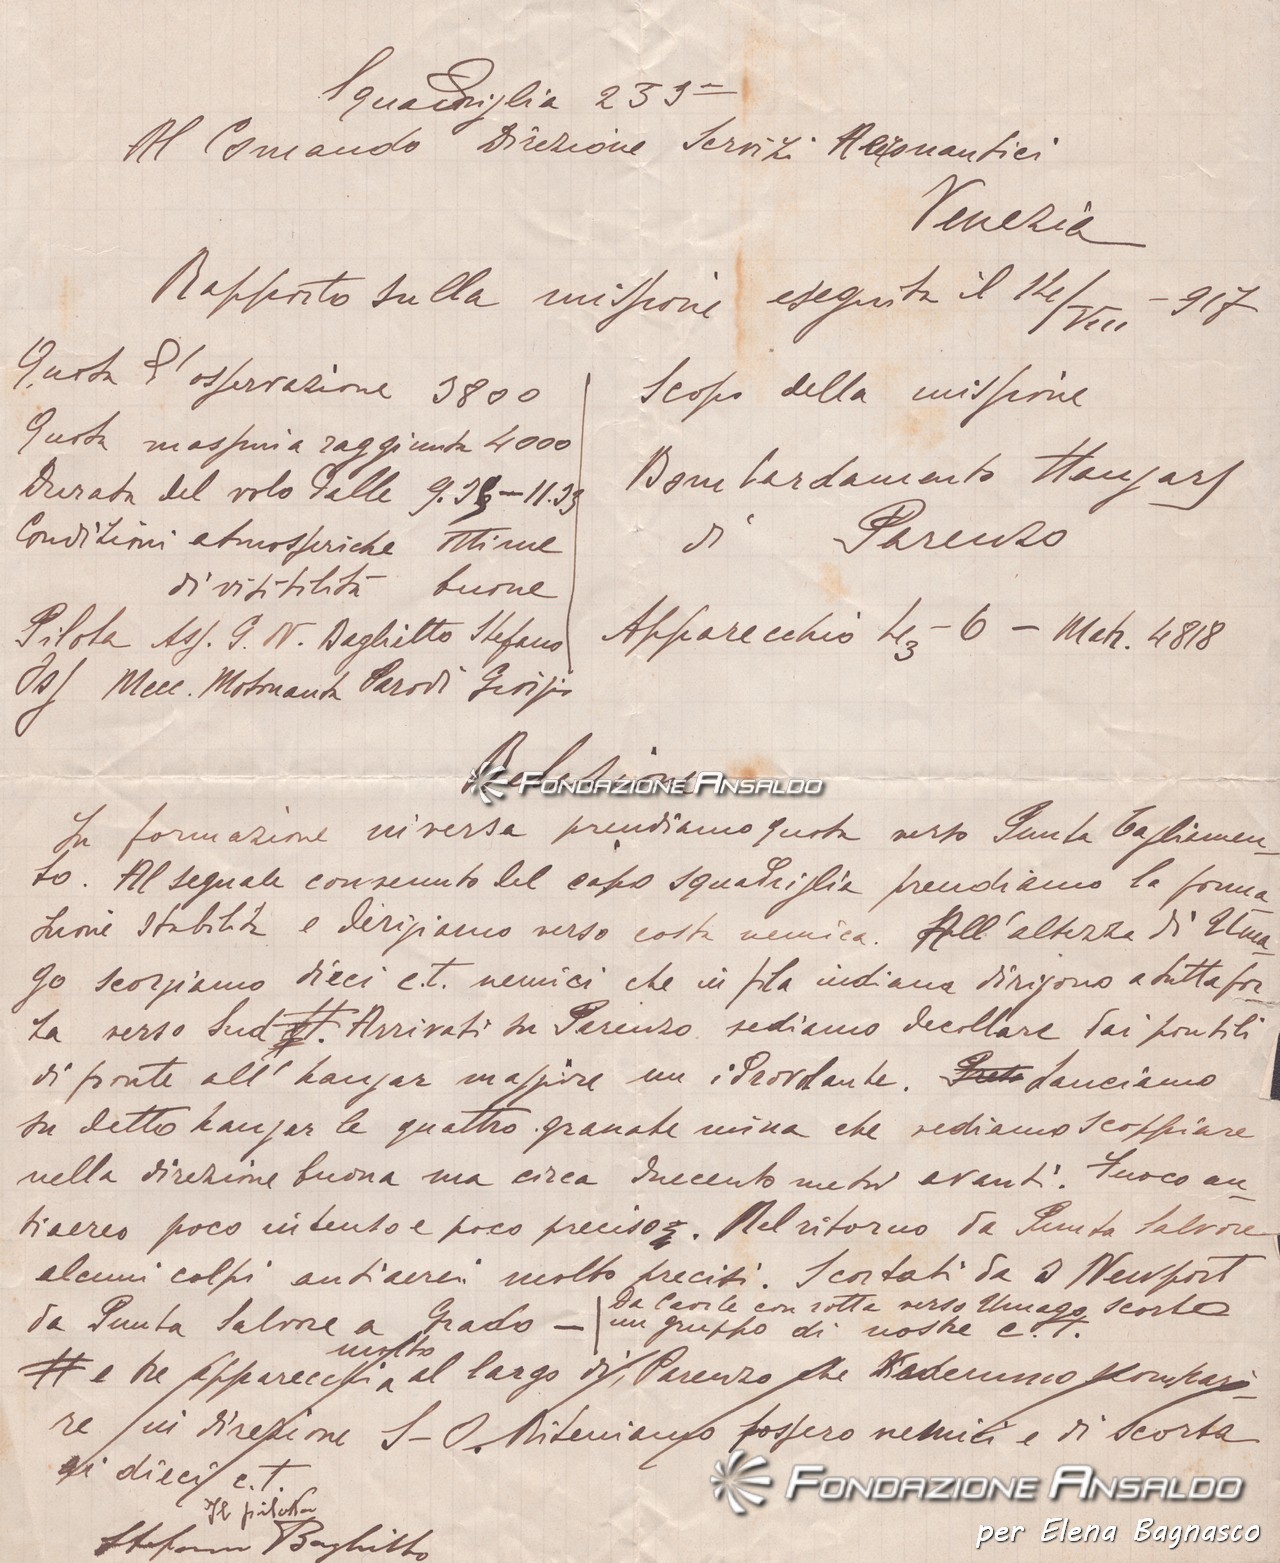 Squadriglia 239ª
Al Comando Direzione Servizi Aeronautici
Venezia
Rapporto sulla missione eseguita il 14/VIII - 917
Quota d'osservazione 3800
Quota massima raggiunta 4000
Durata del volo dalle 9. - 11.23
Condizioni atmosferiche ottime
di visibilità buone
Pilota Asp. G. N. Baghitto Stefano
Oss Mecc. Motonauta Parodi Giorgio
Scopo della missione
Bombardamento Hangars
di Parenzo
Apparecchio L3 - 6 - Matr. 4818
Relazione
In formazione inversa prendiamo quota verso Punta Tagliamen-
to. Al segnale convenuto del capo squadriglia prendiamo la forma
zione stabilita e dirigiamo verso costa nemica. All'altezza di Uma-
go scorgiamo dieci c.t. nemici che in fila indiana dirigono a tutta for-
za verso Sud. Arrivati su Parenzo vediamo decollare dai pontili
di fronte all'hangar maggiore un idrovolante. Lanciamo
su detto hangar le quattro granate mina che vediamo scoppiare
nella direzione buona ma circa duecento metri avanti. Fuoco an-
tiaereo poco intenso e poco preciso. Nel ritorno da Punta Salvore
alcuni colpi antiaerei molto precisi. Scortati da 2 Newport
da Punta Salvore a Grado -
Da Caorle con rotta verso Umago scorto
un gruppo di nostre c.t.
e tre apparecchi molto al largo di Parenzo che vedemmo scompari-
re in direzione S-O. Riteniamo fossero nemici e di scorta
ai dieci c.t.
Il pilota
Stefano Baghitto
Fondazione Ansaldo
Fondazione Ansaldo
per Elena Bagnasco